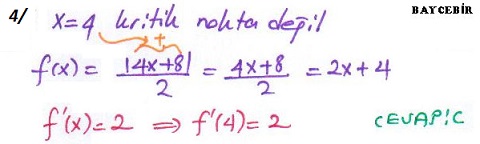 BAYCEBİR
4/ x=4 kritik nokta değil
+
f(x) = |4x+8|/2 = 4x+8/2 = 2x+4
f'(x)=2 ⇒ f'(4)=2 CEVAP:C